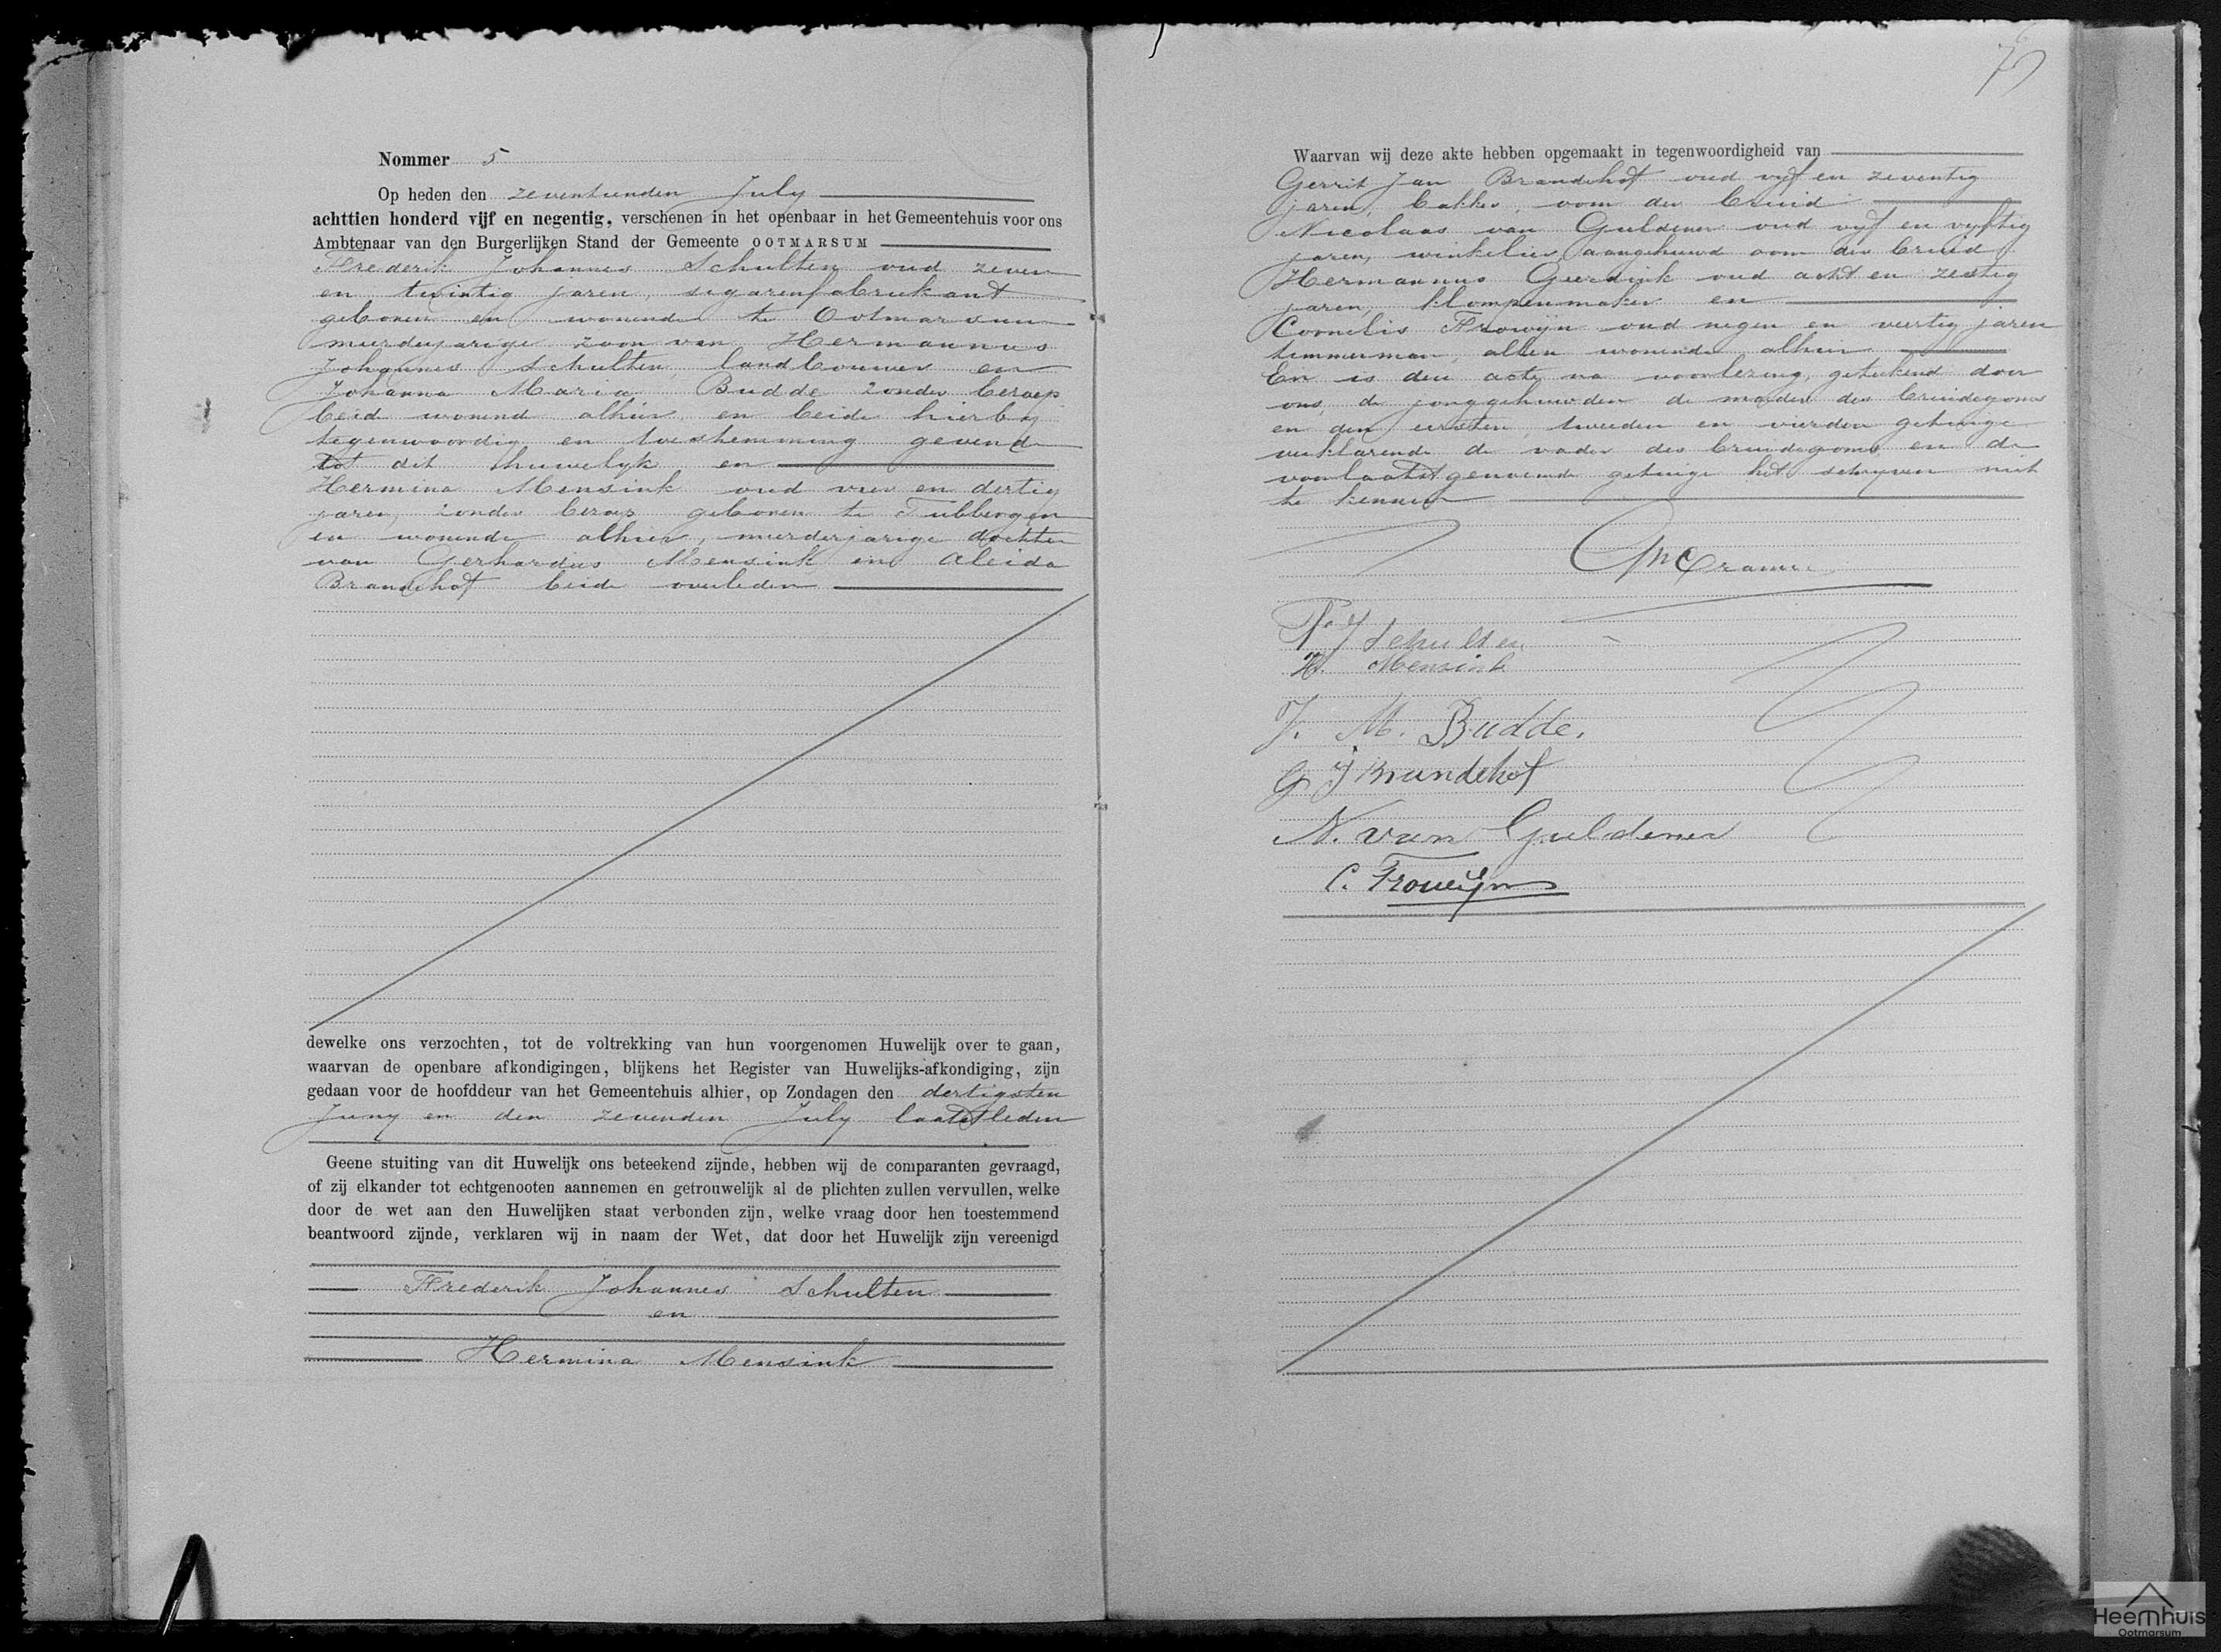 Nommer 5
Op heden den zeventienden July
achttien honderd vijf en negentig, verschenen in het openbaar in het Gemeentehuis voor ons
Ambtenaar van den Burgerlijken Stand der Gemeente OOTMARSUM
Frederik Johannes Schulten oud zeven
en twintig jaren, sigarenfabriekant
geboren en wonende te Ootmarsum
meerderjarige zoon van Hermannus
Johannes Schulten, landbouwer en
Johanna Maria Budde zonder beroep
beid wonend alhier, en beide hierby
tegenwoordig en toestemming gevende
tot dit huwelyk en
Hermina Mensink oud vier en dertig
jaren, zonder beroep geboren te Tubbergen
en wonende alhier, meerderjarige dochter
van Gerhardus Mensink en Aleida
Brandehof beide overleden
dewelke ons verzochten, tot de voltrekking van hun voorgenomen Huwelijk over te gaan,
waarvan de openbare afkondigingen, blijkens het Register van Huwelijks-afkondiging, zijn
gedaan voor de hoofddeur van het Gemeentehuis alhier, op Zondagen den dertigsten
Juny en den zevenden July laatstleden
Geene stuiting van dit Huwelijk ons beteekend zijnde, hebben wij de comparanten gevraagd,
of zij elkander tot echtgenooten aannemen en getrouwelijk al de plichten zullen vervullen, welke
door de wet aan den Huwelijken staat verbonden zijn, welke vraag door hen toestemmend
beantwoord zijnde, verklaren wij in naam der Wet, dat door het Huwelijk zijn vereenigd
Frederik Johannes Schulten
en
Hermina Mensink
Waarvan wij deze akte hebben opgemaakt in tegenwoordigheid van
Gerrit Jan Brandehof oud vyf en zeventig
jaren, bakker, oom der bruid
Nicolaas van Guldener oud vyf en vyftig
jaren, winkelier, aangehuwd oom der bruid
Hermannus Geerdink oud acht en zestig
jaren, klompenmaker en
Cornelis Frowijn oud negen en veertig jaren
timmerman, allen wonende alhier
En is deze acte na voorlezing, geteekend door
ons, de jonggehuwden de moeder des bruidegoms
en den eersten, tweeden en vierden getuige
verklarende de vader des bruidegoms en de
voorlaatstgenoemde getuige het schryven niet
te kennen
Cramer
F. J Schulten
H. Mensink
J. M. Budde.
G J Brandehof
N. van Guldener
C. Froweijn
Heemhuis
Ootmarsum